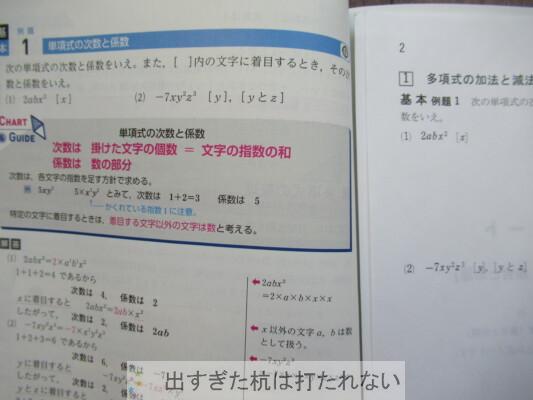 基本
例題
1 単項式の次数と係数
次の単項式の次数と係数をいえ。また，[ ]内の文字に着目するとき，その
数と係数をいえ。
(1) 2abx² [x]
(2) −7xy²z³ [y], [yとz]
CHART & GUIDE
単項式の次数と係数
次数は 掛けた文字の個数 ＝ 文字の指数の和
係数は 数の部分
次数は、各文字の指数を足す方針で求める。
例 5xy² 5×x¹y² とみて、次数は 1+2=3 係数は 5
かくれている指数1に注意。
特定の文字に着目するときは、着目する文字以外の文字は数と考える。
(1) 2abx²=2×a¹b¹x²
1+1+2=4 であるから
次数は 4, 係数は 2
xに着目すると 2abx²=2ab×x²
したがって, 次数は 2, 係数は 2ab
(2) −7xy²z³=−7×x¹y²z³
1+2+3=6 であるから
次数は 6, 係数は −7
yに着目すると
したがって, 次数は 2,
yとzに着目すると
2abx²
=2×a×b×x×x
x 以外の文字 a, b は数
として扱う。
−7xy²z³
2
1 多項式の加法と減法
基本 例題1 次の単項式の
数をいえ。
(1) 2abx² [x]
(2) −7xy²z³ [y], [yとz]
出すぎた杭は打たれない